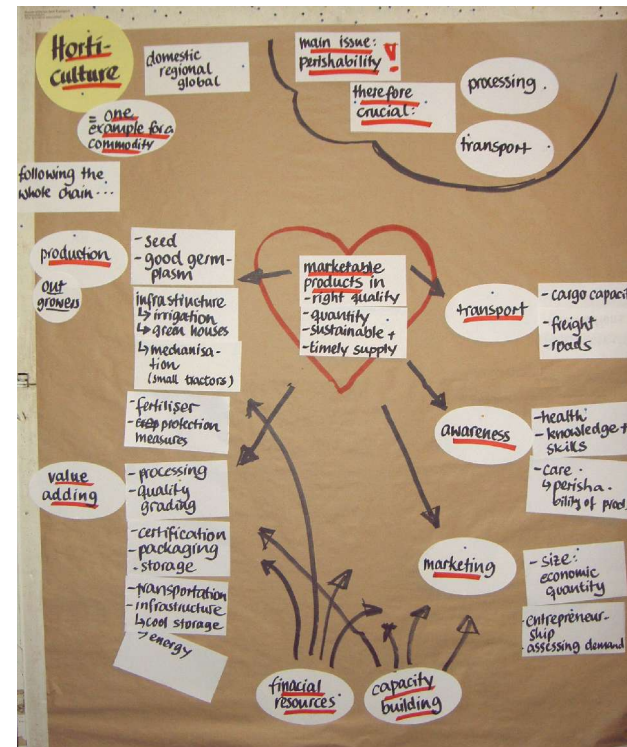 Horti-
culture
domestic
regional
global
= one
example for a
commodity
main issue:
perishability!
therefore
crucial:
processing
transport
following the
whole chain...
production
out
growers
- seed
- good germ-
plasm
infrastructure
↳ irrigation
↳ green houses
↳ mechanisa-
tion
(small tractors)
- fertiliser
- protection
measures
marketable
products in
- right quality
- quantity
- sustainable +
- timely supply
transport
- cargo capaci
- freight
- roads
awareness
- health
- knowledge +
skills
- care
↳ perisha
bility of prod
value
adding
- processing
- quality
grading
- certification
- packaging
- storage
- transportation
- infrastructure
↳ cool storage
> energy
marketing
- size:
economic
quantity
- entrepreneur-
ship
- assessing demand
finacial
resources
capacity
building